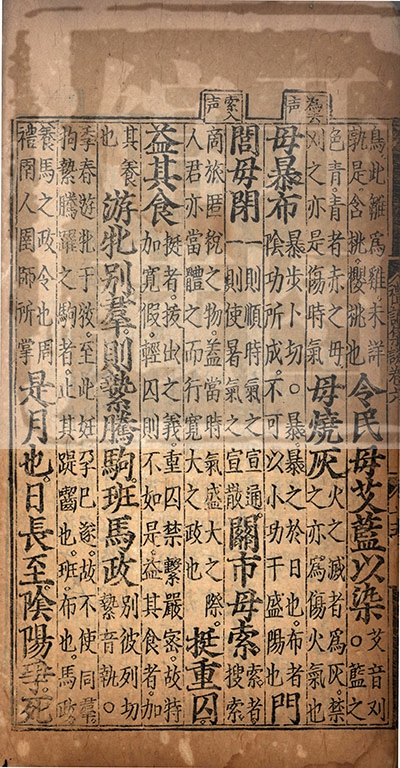 為去声
索入声
鳥此雛爲雞未詳
孰是含桃櫻桃也
令民毋艾藍以染
艾音刈
○藍之
色青青者赤之母
刈之亦是傷時氣
毋燒灰
火之滅者爲灰禁
之亦爲傷火氣也
毋暴布
暴步卜切○暴暴之於日也布者
陰功所成不可以小功干盛陽也
門
閭毋閉
一則順時氣之宣通
一則使暑氣之宣散
關市毋索
索者
搜索
商旅匿稅之物蓋當時氣盛大之際
人君亦當體之而行寬大之政也
挺重囚
益其食
挺者拔出之義重囚禁繫嚴密故特
加寬假輕囚則不如是益其食者加
其養
也
游牝别羣則縶騰駒班馬政
别彼列切
縶音執○
季春遊牝于牧至此妊孕已遂故不使同羣
拘縶騰躍之駒者止其踶齧也班布也馬政
養馬之政令也周
禮圉人圉師所掌
是月也日長至陰陽爭死